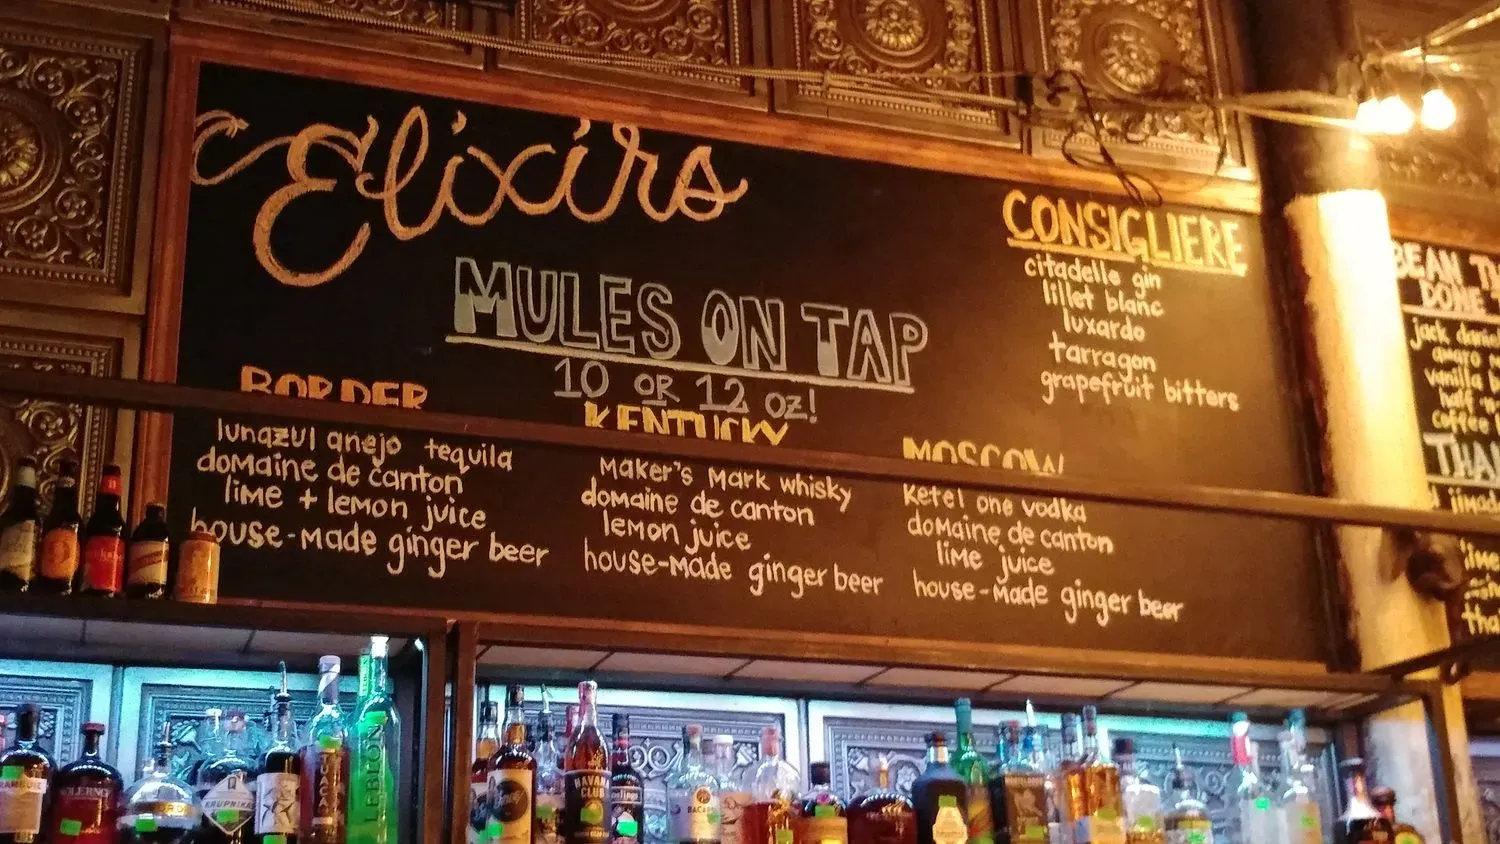 Elixirs
MULES ON TAP
10 OR 12 oz!
BORDER
lunazul anejo tequila
domaine de canton
lime + lemon juice
house-made ginger beer
KENTUCKY
Maker's Mark whisky
domaine de canton
lemon juice
house-made ginger beer
MOSCOW
Ketel one vodka
domaine de canton
lime juice
house-made ginger beer
CONSIGLIERE
citadelle gin
lillet blanc
luxardo
tarragon
grapefruit bitters
BEAN
DONE
jack
vanilla
half
coffee
KRUPNIKAS
LEBLON
HAVANA
CLUB
BACARDI